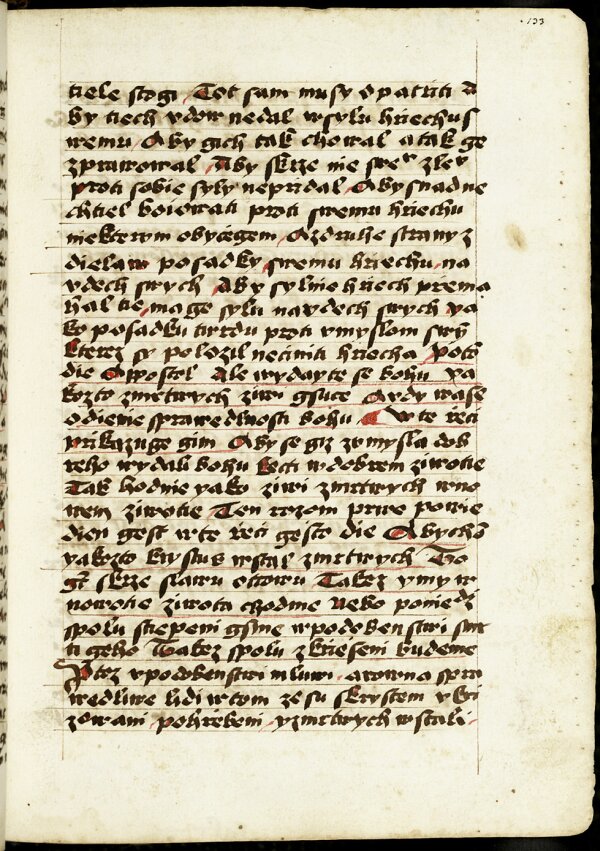 133
tiele stogi Tot sam musy opatriti A
by tiech vdow nedal wsylu hriechu s
wemu Aby gich tak chowal a tak ge
zprawowal Aby skrze nie swe zlev
proti sobie syly nepridal Aby snadne
chtiel boiowati proti swemu hriechu
niekterym obycegem A zdruhe strany z
dielaw posadky swemu hriechu na
vdech swych Aby sylnie hriech prema
hal tie mage sylu na vdech swych ya
ko posadku twrdu proti vmyslom swy
kterez sy polozil neciniti hriecha Poto
die Apostol Ale wydayte se bohu ya
kozto zmrtwych ziwi gsuce A vdy wase
odienie sprawedlnosti bohu W te reci
prikazuge gim Aby se giz zvmysla dob
reho wydali bohu kcti wdobrem ziwotie
Tak hodnie yako ziwi zmrtwych wno
wem ziwotie Ten rozom prwe powie
dien gest wte reci gesto die Abycho
yakozto krystus wstal zmrtwych To
gt skrze slawu otcowu Takez y my w
nowotie ziwota chodme Nebo poniedz
spolu stiepeni gsme wpodobenstwi smr
ti geho Takez spolu zkrieseni budeme
Ptez vpodobenstwi mluwi arowna spra
wedliwe lidi wtom ze su skrystem vkri
zowani pohrebeni y zmrtwych wstali